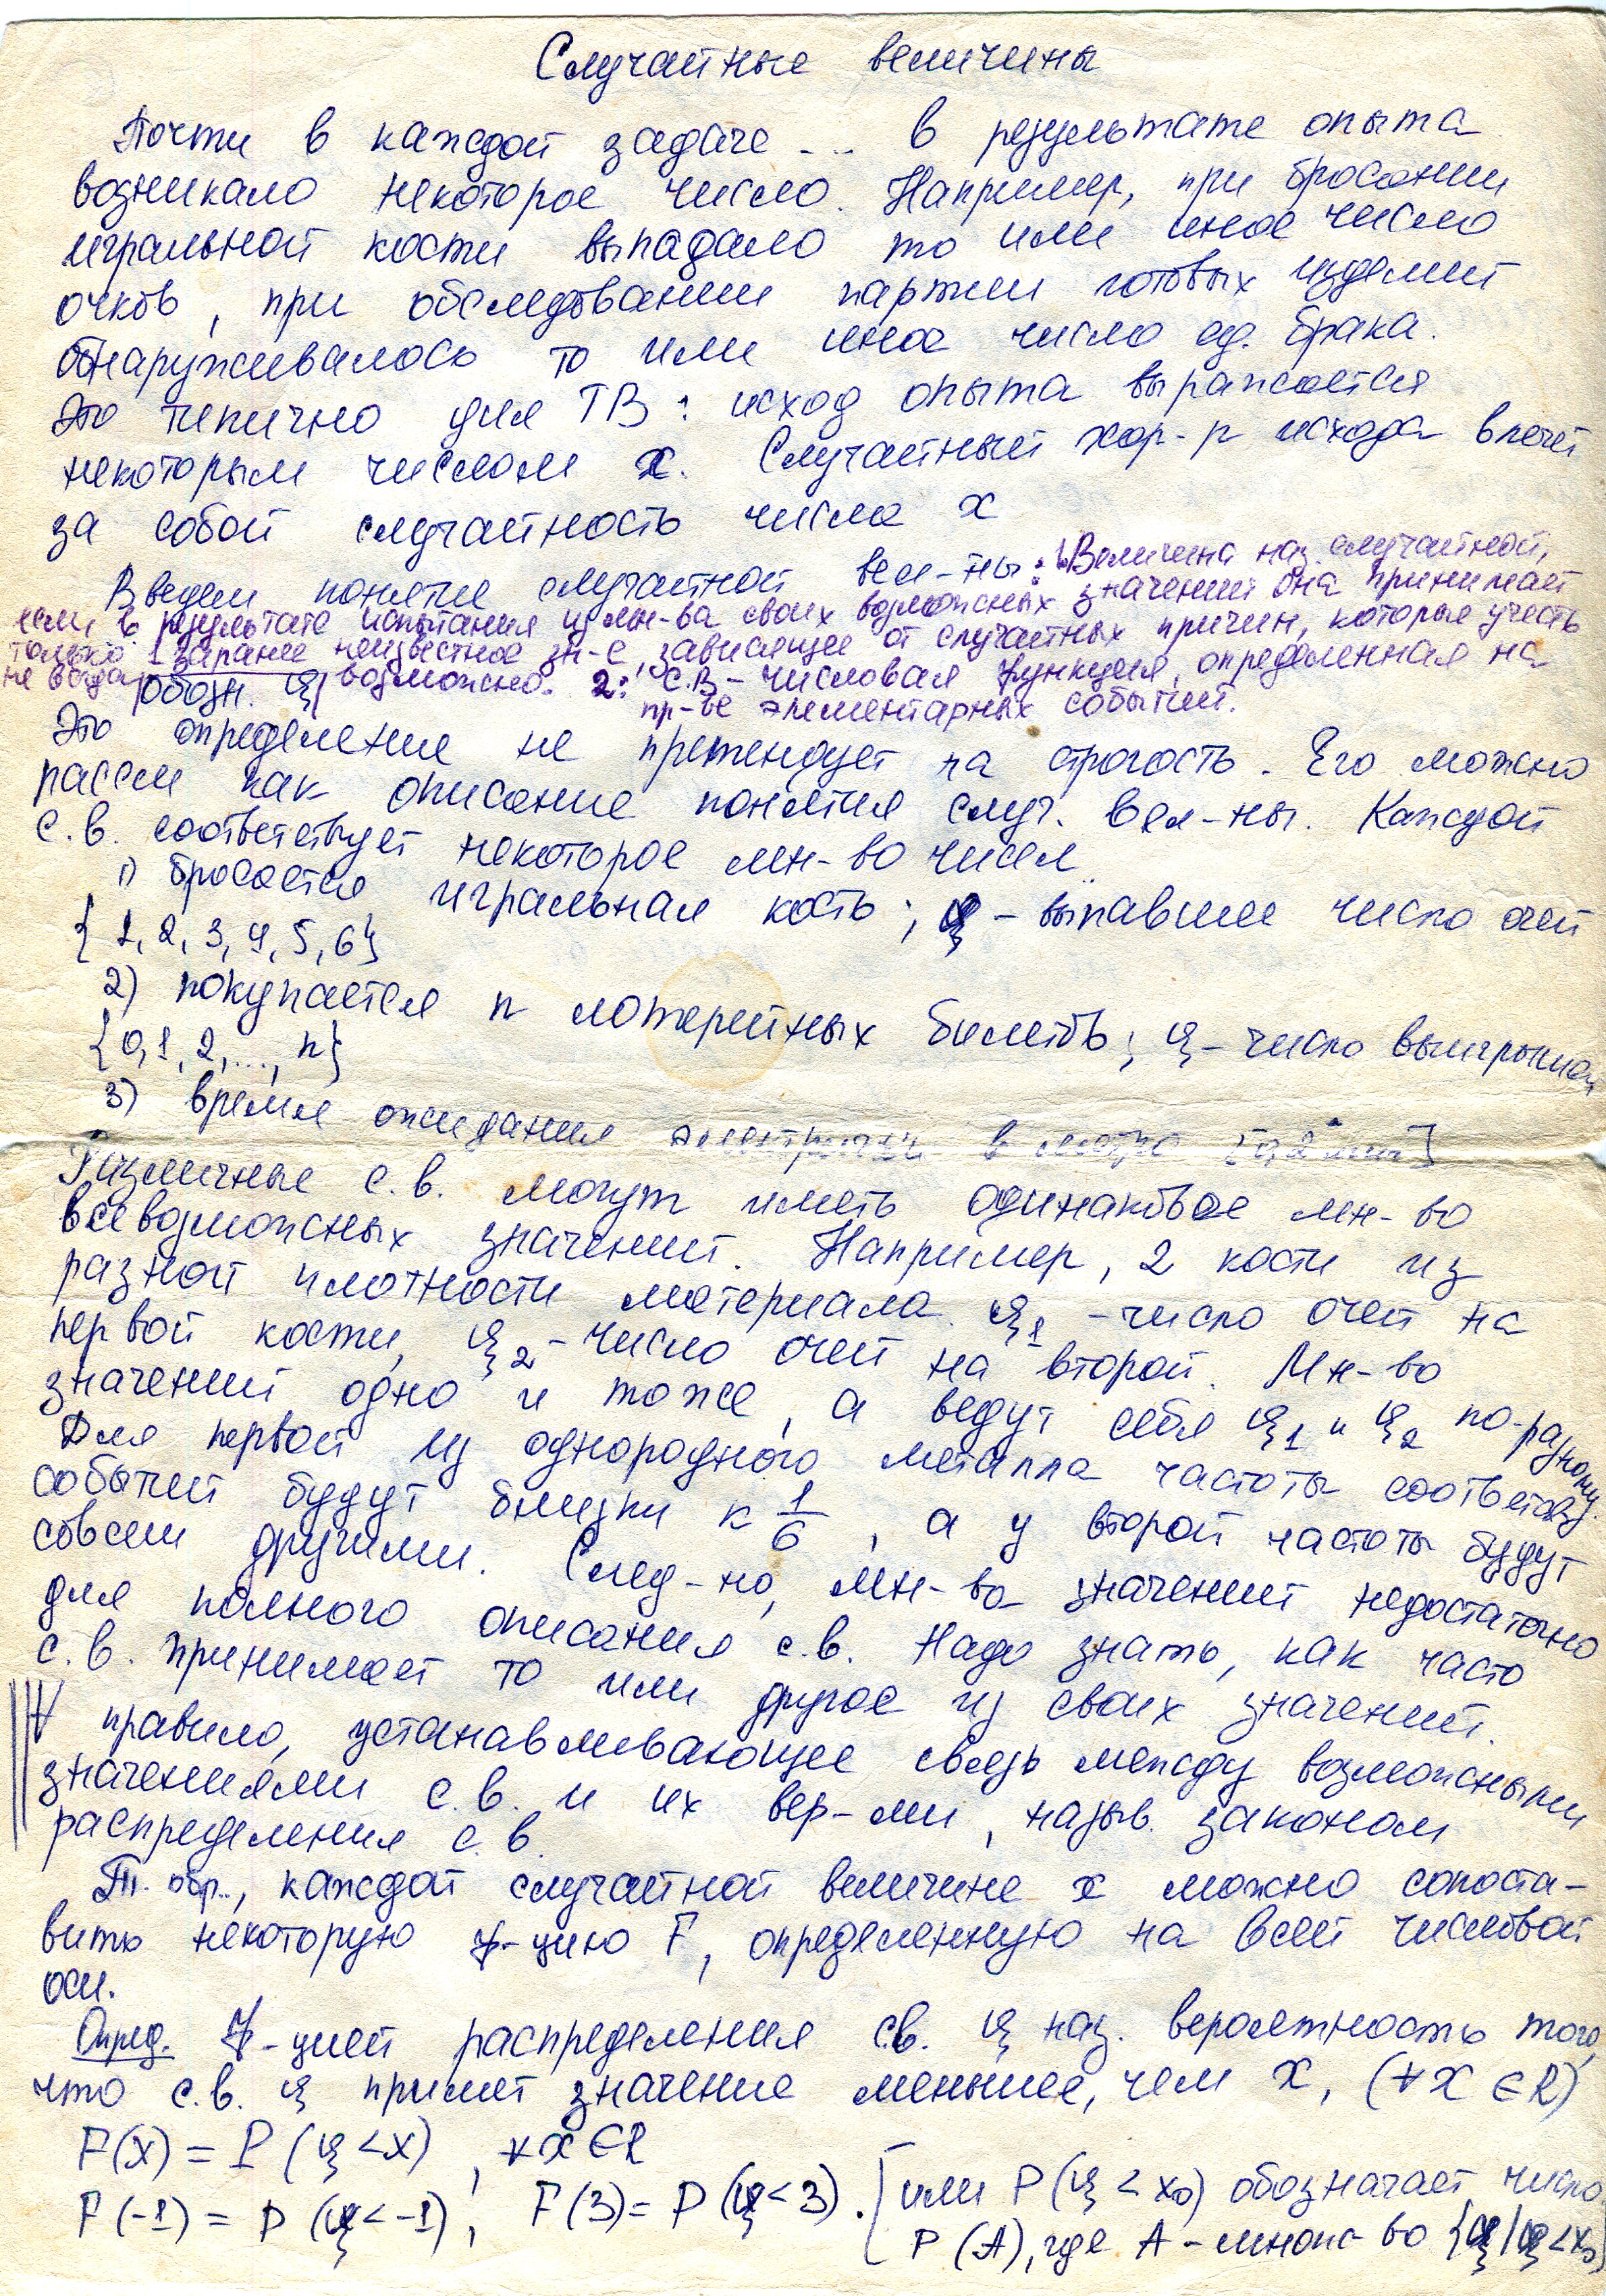 Случайные величины
Почти в каждой задаче ... в результате опыта
возникало некоторое число. Например, при бросании
игральной кости выпадало то или иное число
очков, при обследовании партии готовых изделий
обнаруживалось то или иное число ед. брака.
Это типично для ТВ: исход опыта выражается
некоторым числом x. Случайный хар-р исхода влечет
за собой случайность числа x
Введем понятие случайной вел-ны: 1. Величина наз. случайной,
если в результате испытания из мн-ва своих возможных значений она принимает
только 1 заранее неизвестное зн-е, зависящее от случайных причин, которые учесть
не всегда возможно. 2: С.В - числовая функция, определенная на
обозн. ξ
пр-ве элементарных событий.
Это определение не претендует на строгость. Его можно
рассм как описание понятия случ. вел-ны. Каждой
с.в. соответствует некоторое мн-во чисел.
1) бросается игральная кость; ξ - выпавшее число очей
{1, 2, 3, 4, 5, 6}
2) покупается n лотерейных билетов; ξ - число выигрышей
{0, 1, 2, ..., n}
3) время ожидания электрички в метро
Различные с.в. могут иметь одинаковое мн-во
всевозможных значений. Например, 2 кости из
разной плотности материала. ξ1 - число очей на
первой кости, ξ2 - число очей на второй. Мн-во
значений одно и тоже, а ведут себя ξ1 и ξ2 по-разному.
Для первой из однородного металла частоты соответств-у
событий будут близки к 1/6, а у второй частоты будут
совсем другими. След-но, мн-во значений недостаточно
для полного описания с.в. Надо знать, как часто
с.в. принимает то или другое из своих значений.
∀ правило, устанавливающее связь между возможными
значениями с.в. и их вер-ми, назыв. законом
распределения с.в.
Т. обр., каждой случайной величине x можно сопоста-
вить некоторую ф-цию F, определенную на всей числовой
оси.
Опред. Ф-цией распределения с.в. ξ наз. вероятность того,
что с.в. ξ примет значение меньшее, чем x, (∀x ∈ R)
F(x) = P(ξ < x), ∀x ∈ R
F(-1) = P(ξ < -1); F(3) = P(ξ < 3). [или P(ξ < x₀) обозначает число
P(A), где A - множ-во {ξ/ξ < x₀}